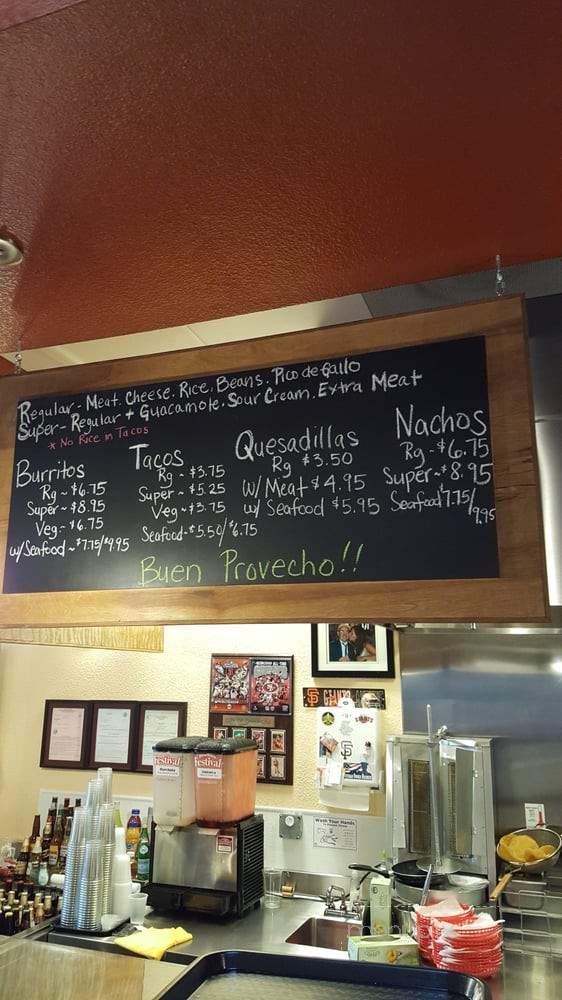 Regular - Meat. Cheese. Rice. Beans. Pico de Gallo
Super - Regular + Guacamole. Sour Cream. Extra Meat
* No Rice in Tacos
Burritos
Rg ~ $6.75
Super ~ $8.95
Veg ~ $6.75
w/Seafood ~ $7.75/$9.95
Tacos
Rg ~ $3.75
Super ~ $5.25
Veg ~ $3.75
Seafood - $5.50/$6.75
Quesadillas
Rg $3.50
w/ Meat $4.95
w/ Seafood $5.95
Nachos
Rg ~ $6.75
Super ~ $8.95
Seafood $7.75/
9.95
Buen Provecho!!
festival
festival
Jamaica
SF GIANTS
SF
Wash Your Hands